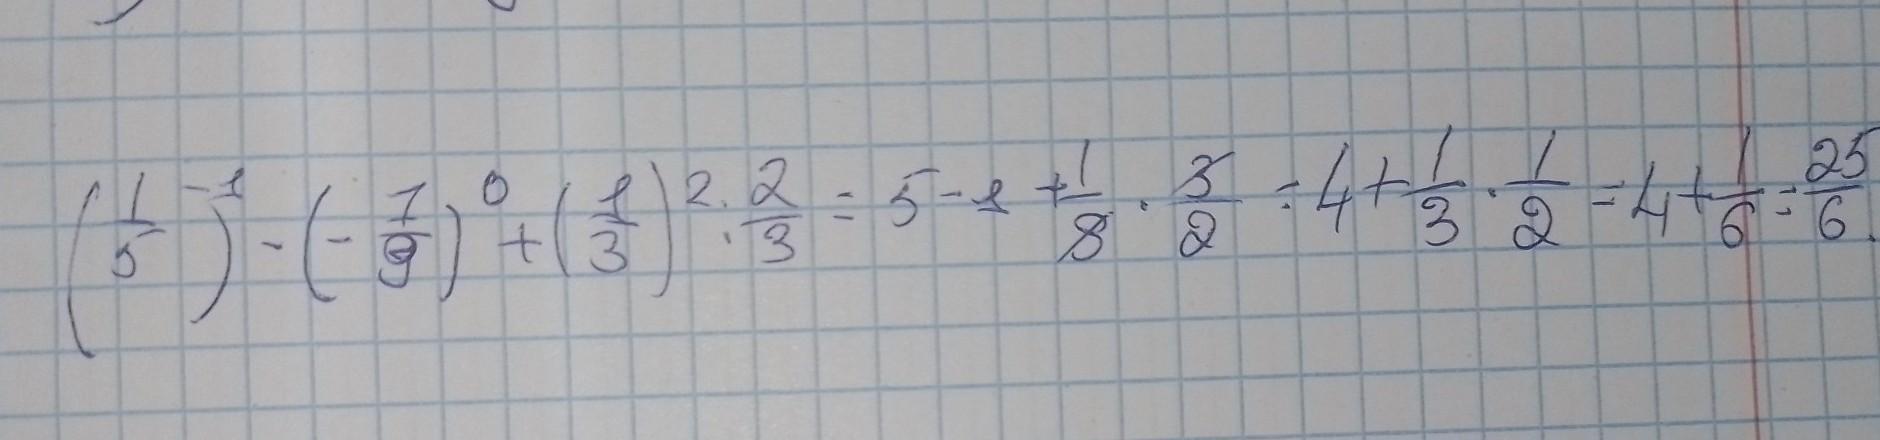 (1/5)^-1 - (-7/9)^0 + (1/3)^2 : 2/3 = 5 - 1 + 1/9 · 3/2 = 4 + 1/3 · 1/2 = 4 + 1/6 = 25/6.